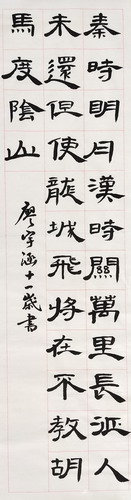 秦時明月漢時關萬里長征人
未還但使龍城飛將在不教胡
馬度陰山
廖宇涵十一歲書